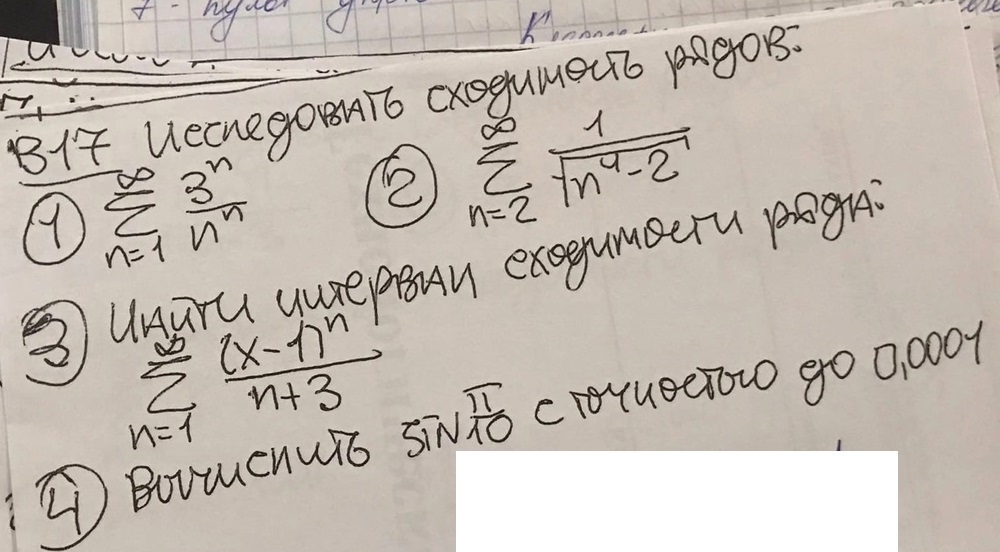 7 - нулю
В17 Исследовать сходимость рядов:
① \sum_{n=1}^{\infty} \frac{3^n}{n^n} ② \sum_{n=2}^{\infty} \frac{1}{\sqrt{n^4-2}}
③ Найти интервал сходимости ряда:
\sum_{n=1}^{\infty} \frac{(x-1)^n}{n+3}
④ Вычислить sin \frac{π}{10} с точностью до 0,0001